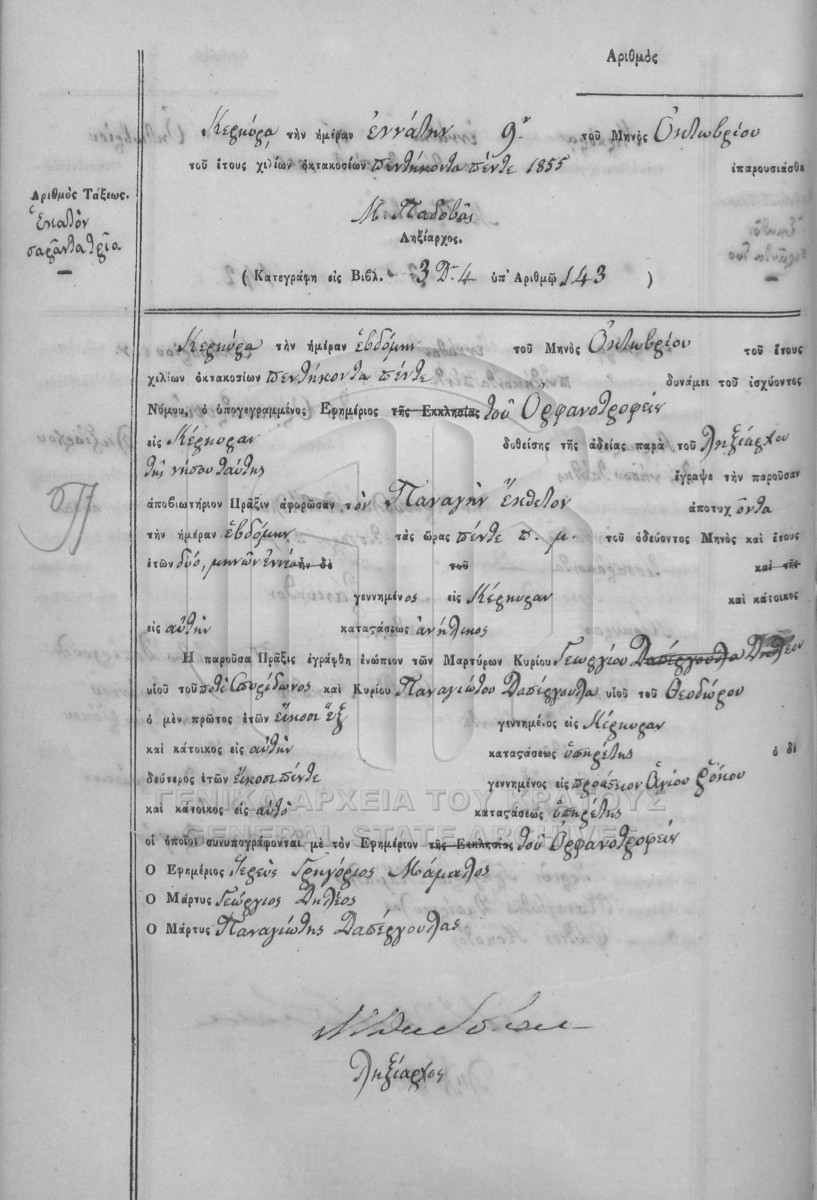 Αριθμὸς
Κερκύρᾳ τὴν ἡμέραν ἐννάτην 9ῃ τοῦ Μηνὸς Ὀκτωβρίου
τοῦ ἔτους χιλίων ὀκτακοσίων πεντήκοντα πέντε 1855 ἐπαρουσιάσθη
Ἀριθμὸς Τάξεως.
Ἑκατὸν
σαράντα τρία
Μ. Παδοβᾶς
Ληξίαρχος.
( Κατεγράφη εἰς Βιβλ. 3 Δ. 4 ὑπ' Ἀριθμῷ 143 )
Κερκύρᾳ τὴν ἡμέραν ἑβδόμην τοῦ Μηνὸς Ὀκτωβρίου τοῦ ἔτους
χιλίων ὀκτακοσίων πεντήκοντα πέντε δυνάμει τοῦ ἰσχύοντος
Νόμου, ὁ ὑπογεγραμμένος Ἐφημέριος τῆς Ἐκκλησίας τοῦ Ὀρφανοτροφείου
εἰς Κέρκυραν δοθείσης τῆς ἀδείας παρὰ τοῦ Ληξιάρχου
τῆς νήσου ταύτης ἔγραψε τὴν παροῦσαν
ἀποβιωτήριον Πρᾶξιν ἀφορῶσαν τὸν Παναγῆν Ἔκθετον ἀποτυχόντα
τὴν ἡμέραν ἑβδόμην τὰς ὥρας πέντε π. μ. τοῦ ὁδεύοντος Μηνὸς καὶ ἔτους
ἐτῶν δύο, μηνῶν ἐννέα ἦν δὲ τοῦ καὶ τῆς
γεννημένος εἰς Κέρκυραν καὶ κάτοικος
εἰς αὐτὴν καταςάσεως ἀνήλικος
Ἡ παροῦσα Πρᾶξις ἐγράφθη ἐνώπιον τῶν Μαρτύρων Κυρίου Γεωργίου Δαπέργουλα Δηλέου
υἱοῦ τοῦ ποτὲ Σπυρίδωνος καὶ Κυρίου Παναγιώτου Δαπέργουλα υἱοῦ τοῦ Θεοδώρου
ὁ μὲν πρῶτος ἐτῶν εἴκοσι ἕξ γεννημένος εἰς Κέρκυραν
καὶ κάτοικος εἰς αὐτὴν καταςάσεως ὑπηρέτης ὁ δὲ
δεύτερος ἐτῶν εἴκοσι πέντε γεννημένος εἰς προάστιον Ἁγίου Ῥόκου
καὶ κάτοικος εἰς αὐτὸ καταςάσεως ὑπηρέτης
ΓΕΝΙΚΑ ΑΡΧΕΙΑ ΤΟΥ ΚΡΑΤΟΥΣ
GENERAL STATE ARCHIVES
οἱ ὁποῖοι συνυπογράφονται μὲ τὸν Ἐφημέριον τῆς Ἐκκλησίας τοῦ Ὀρφανοτροφείου
Ὁ Ἐφημέριος Ἱερεὺς Γρηγόριος Μάμαλος
Ὁ Μάρτυς Γεώργιος Δηλέος
Ὁ Μάρτυς Παναγιώτης Δαπέργουλας
Ληξίαρχος